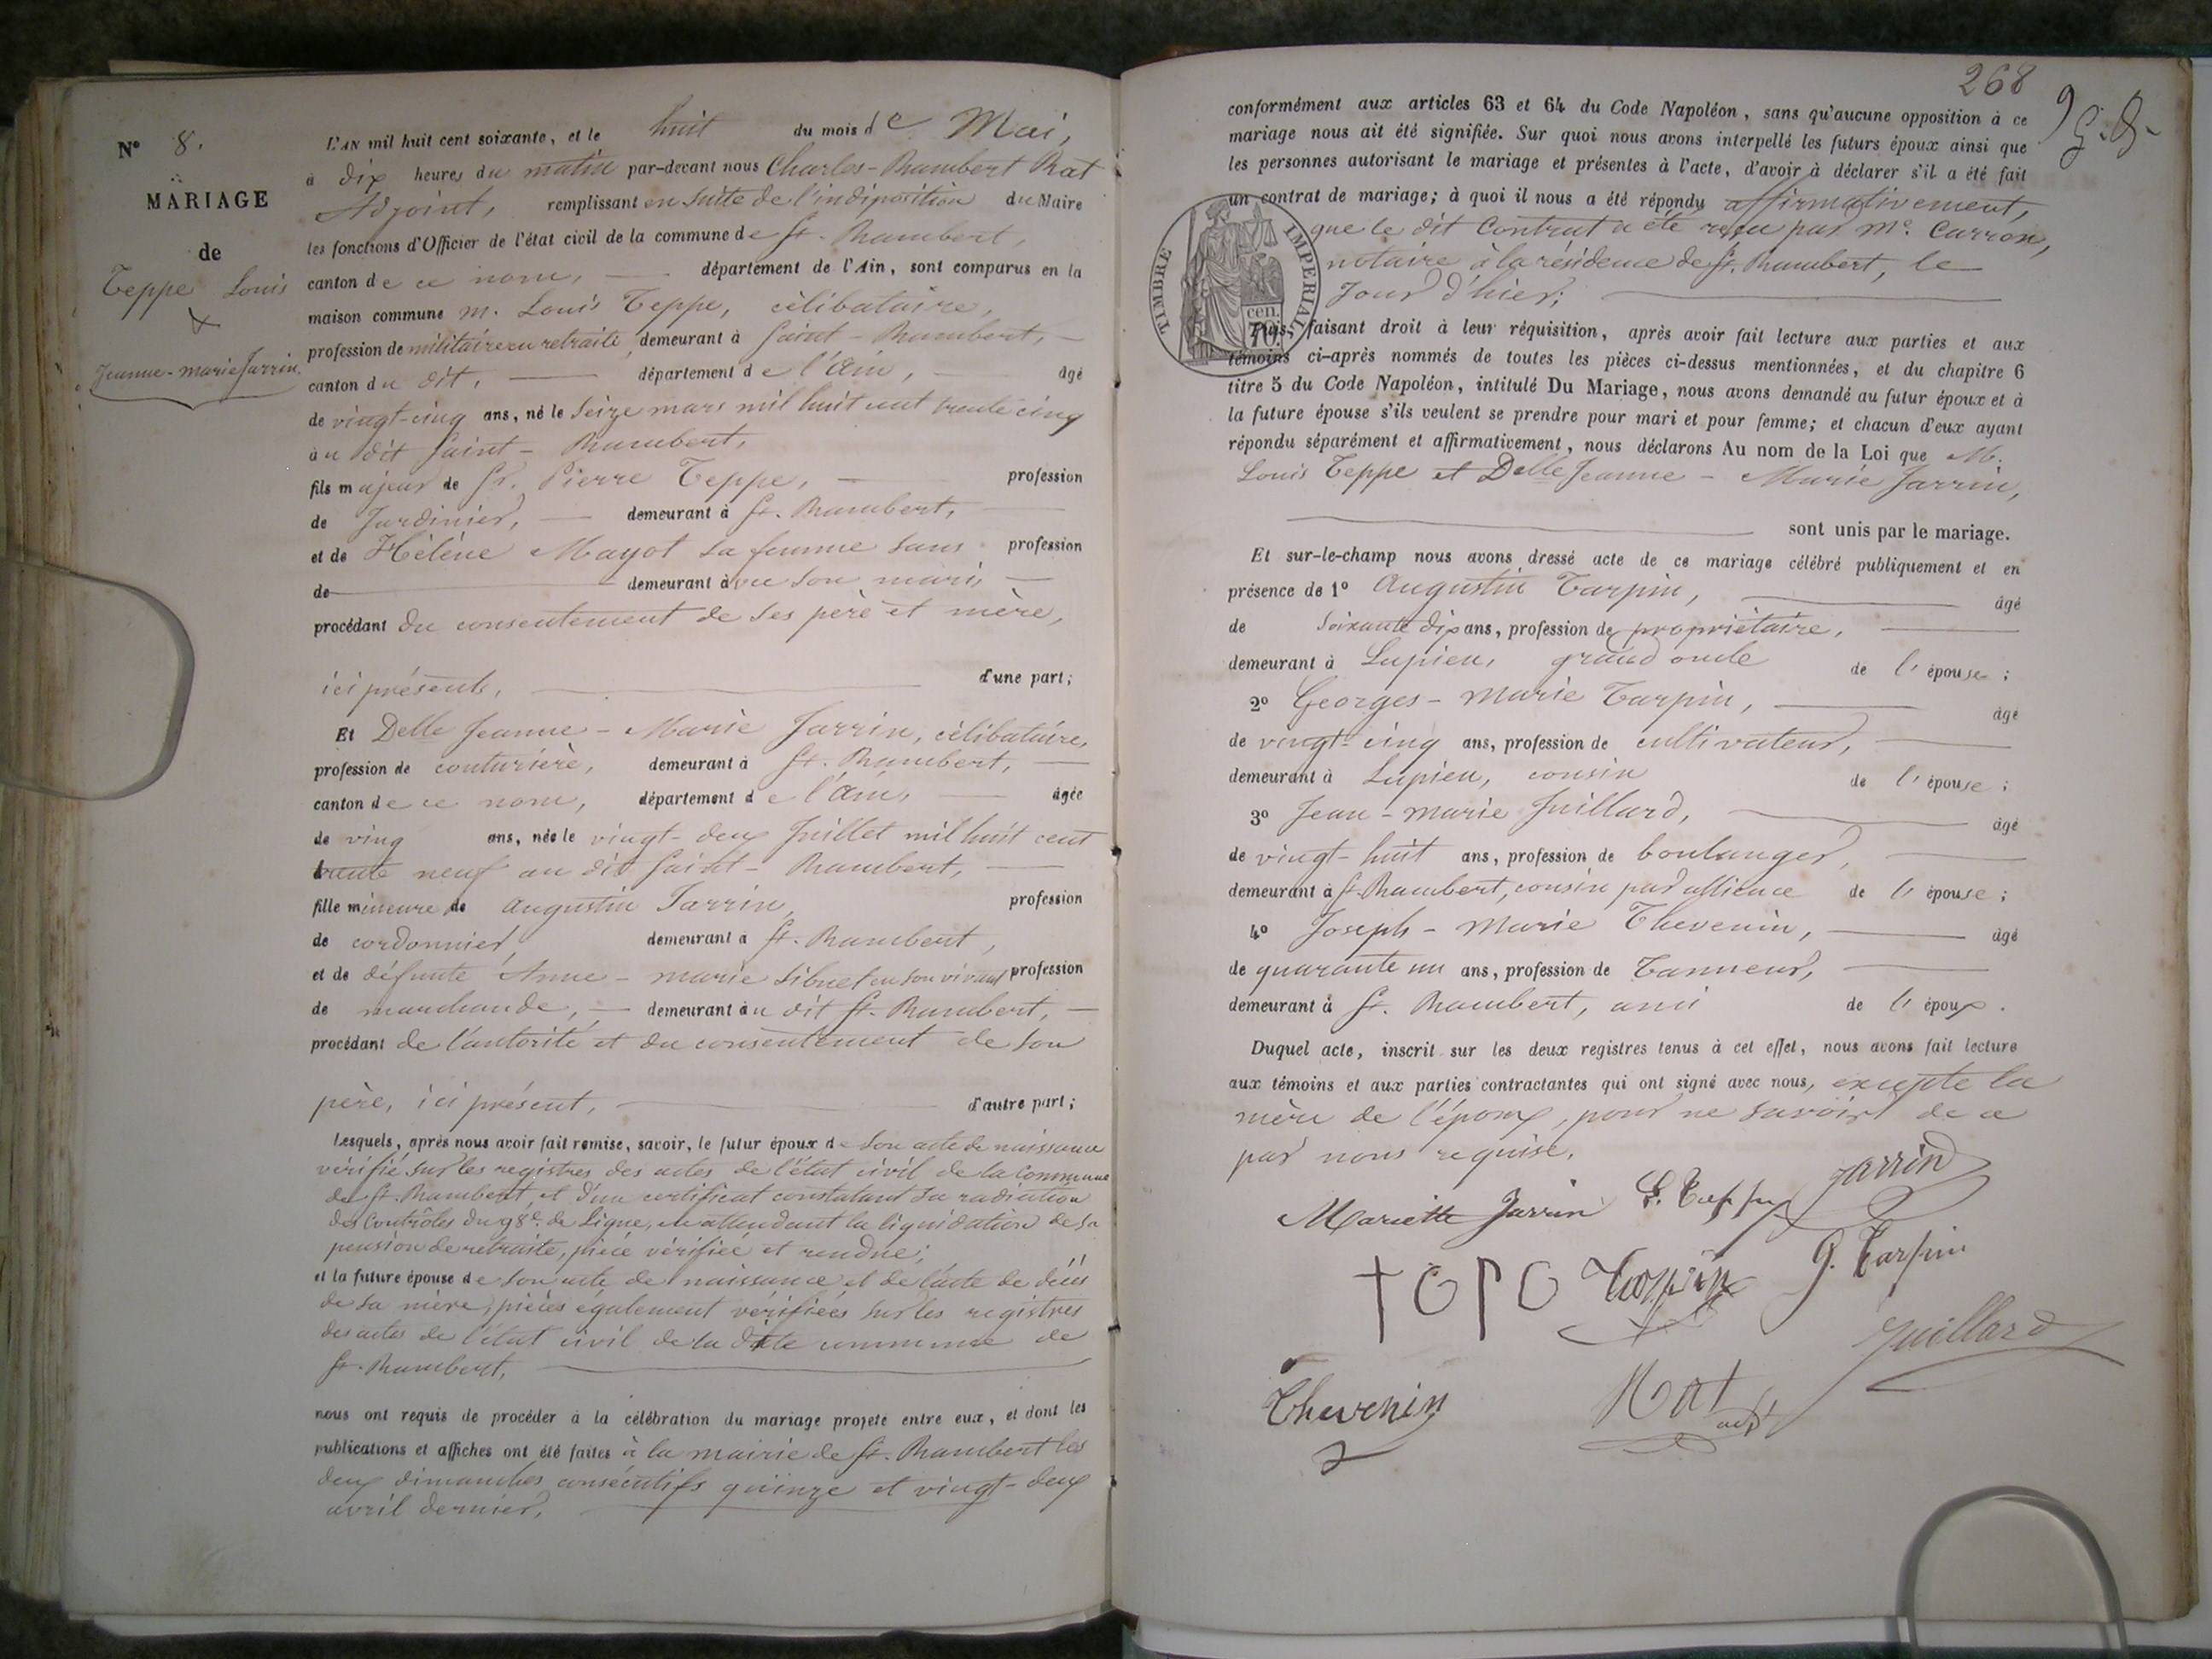 N° 8.
MARIAGE
de
Teppe Louis
&
Jeanne-marie Jarrin.
L'AN mil huit cent soixante, et le huit du mois de Mai,
à dix heures du matin par-devant nous Charles-Rambert Rat
Adjoint, remplissant en suite de l'indisposition du Maire
les fonctions d'Officier de l'état civil de la commune de St. Rambert,
canton de ce nom, département de l'Ain, sont comparus en la
maison commune m. Louis Teppe, célibataire,
profession de militaire en retraite, demeurant à Saint-Rambert,
canton du dit, département de l'Ain, âgé
de vingt-cinq ans, né le Seize mars mil huit cent trente cinq
au dit Saint-Rambert,
fils majeur de Sr. Pierre Teppe, profession
de Jardinier, demeurant à St. Rambert,
et de Hélène Mayot sa femme sans profession
de demeurant avec son mari,
procédant du consentement de ses père et mère,
ici présents, d'une part;
Et Delle Jeanne-Marie Jarrin, célibataire,
profession de couturière, demeurant à St. Rambert,
canton de ce nom, département de l'Ain, âgée
de ving ans, née le vingt-deux Juillet mil huit cent
trente neuf au dit Saint-Rambert,
fille mineure de Augustin Jarrin, profession
de cordonnier, demeurant à St. Rambert,
et de défunte Anne-marie Sibuet en son vivant profession
de marchande, demeurant au dit St. Rambert,
procédant de l'autorité et du consentement de son
père, ici présent, d'autre part;
Lesquels, après nous avoir fait remise, savoir, le futur époux de son acte de naissance
vérifié sur les registres des actes de l'état civil de la commune
de St. Rambert, et d'un certificat constatant sa radiation
des Contrôles du 98e. de Ligne, en attendant la liquidation de sa
pension de retraite, pièce vérifiée et rendue;
et la future épouse de son acte de naissance et de l'acte de décès
de sa mère, pièces également vérifiées sur les registres
des actes de l'état civil de la dite commune de
St. Rambert,
nous ont requis de procéder à la célébration du mariage projeté entre eux, et dont les
publications et affiches ont été faites à la mairie de St. Rambert les
deux dimanches consécutifs quinze et vingt-deux
avril dernier,
268
conformément aux articles 63 et 64 du Code Napoléon, sans qu'aucune opposition à ce
mariage nous ait été signifiée. Sur quoi nous avons interpellé les futurs époux ainsi que
les personnes autorisant le mariage et présentes à l'acte, d'avoir à déclarer s'il a été fait
un contrat de mariage; à quoi il nous a été répondu affirmativement,
que le dit Contrat a été reçu par Me. Carron,
notaire à la résidence de St. Rambert, le
Jour d'hier;
TIMBRE IMPERIAL
cen.
Puis, faisant droit à leur réquisition, après avoir fait lecture aux parties et aux
témoins ci-après nommés de toutes les pièces ci-dessus mentionnées, et du chapitre 6
titre 5 du Code Napoléon, intitulé Du Mariage, nous avons demandé au futur époux et à
la future épouse s'ils veulent se prendre pour mari et pour femme; et chacun d'eux ayant
répondu séparément et affirmativement, nous déclarons Au nom de la Loi que M.
Louis Teppe et Delle Jeanne-Marie Jarrin,
sont unis par le mariage.
Et sur-le-champ nous avons dressé acte de ce mariage célébré publiquement et en
présence de 1° Augustin Tarpin, âgé
de Soixante dix ans, profession de propriétaire,
demeurant à Lupieu, grand oncle de l'épouse;
2° Georges-Marie Tarpin, âgé
de vingt-cinq ans, profession de cultivateur,
demeurant à Lupieu, cousin de l'épouse;
3° Jean-marie Juillard, âgé
de vingt-huit ans, profession de boulanger,
demeurant à St. Rambert, cousin par allience de l'épouse;
4° Joseph-Marie Thevenin, âgé
de quarante un ans, profession de Tanneur,
demeurant à St. Rambert, ami de l'époux.
Duquel acte, inscrit sur les deux registres tenus à cet effet, nous avons fait lecture
aux témoins et aux parties contractantes qui ont signé avec nous, excepté la
mère de l'époux, pour ne savoir de ce
par nous requise.
Mariette Jarrin L. Teppe Jarrin
Tarpin G. Tarpin
Juillard
Thevenin Rat
adjt